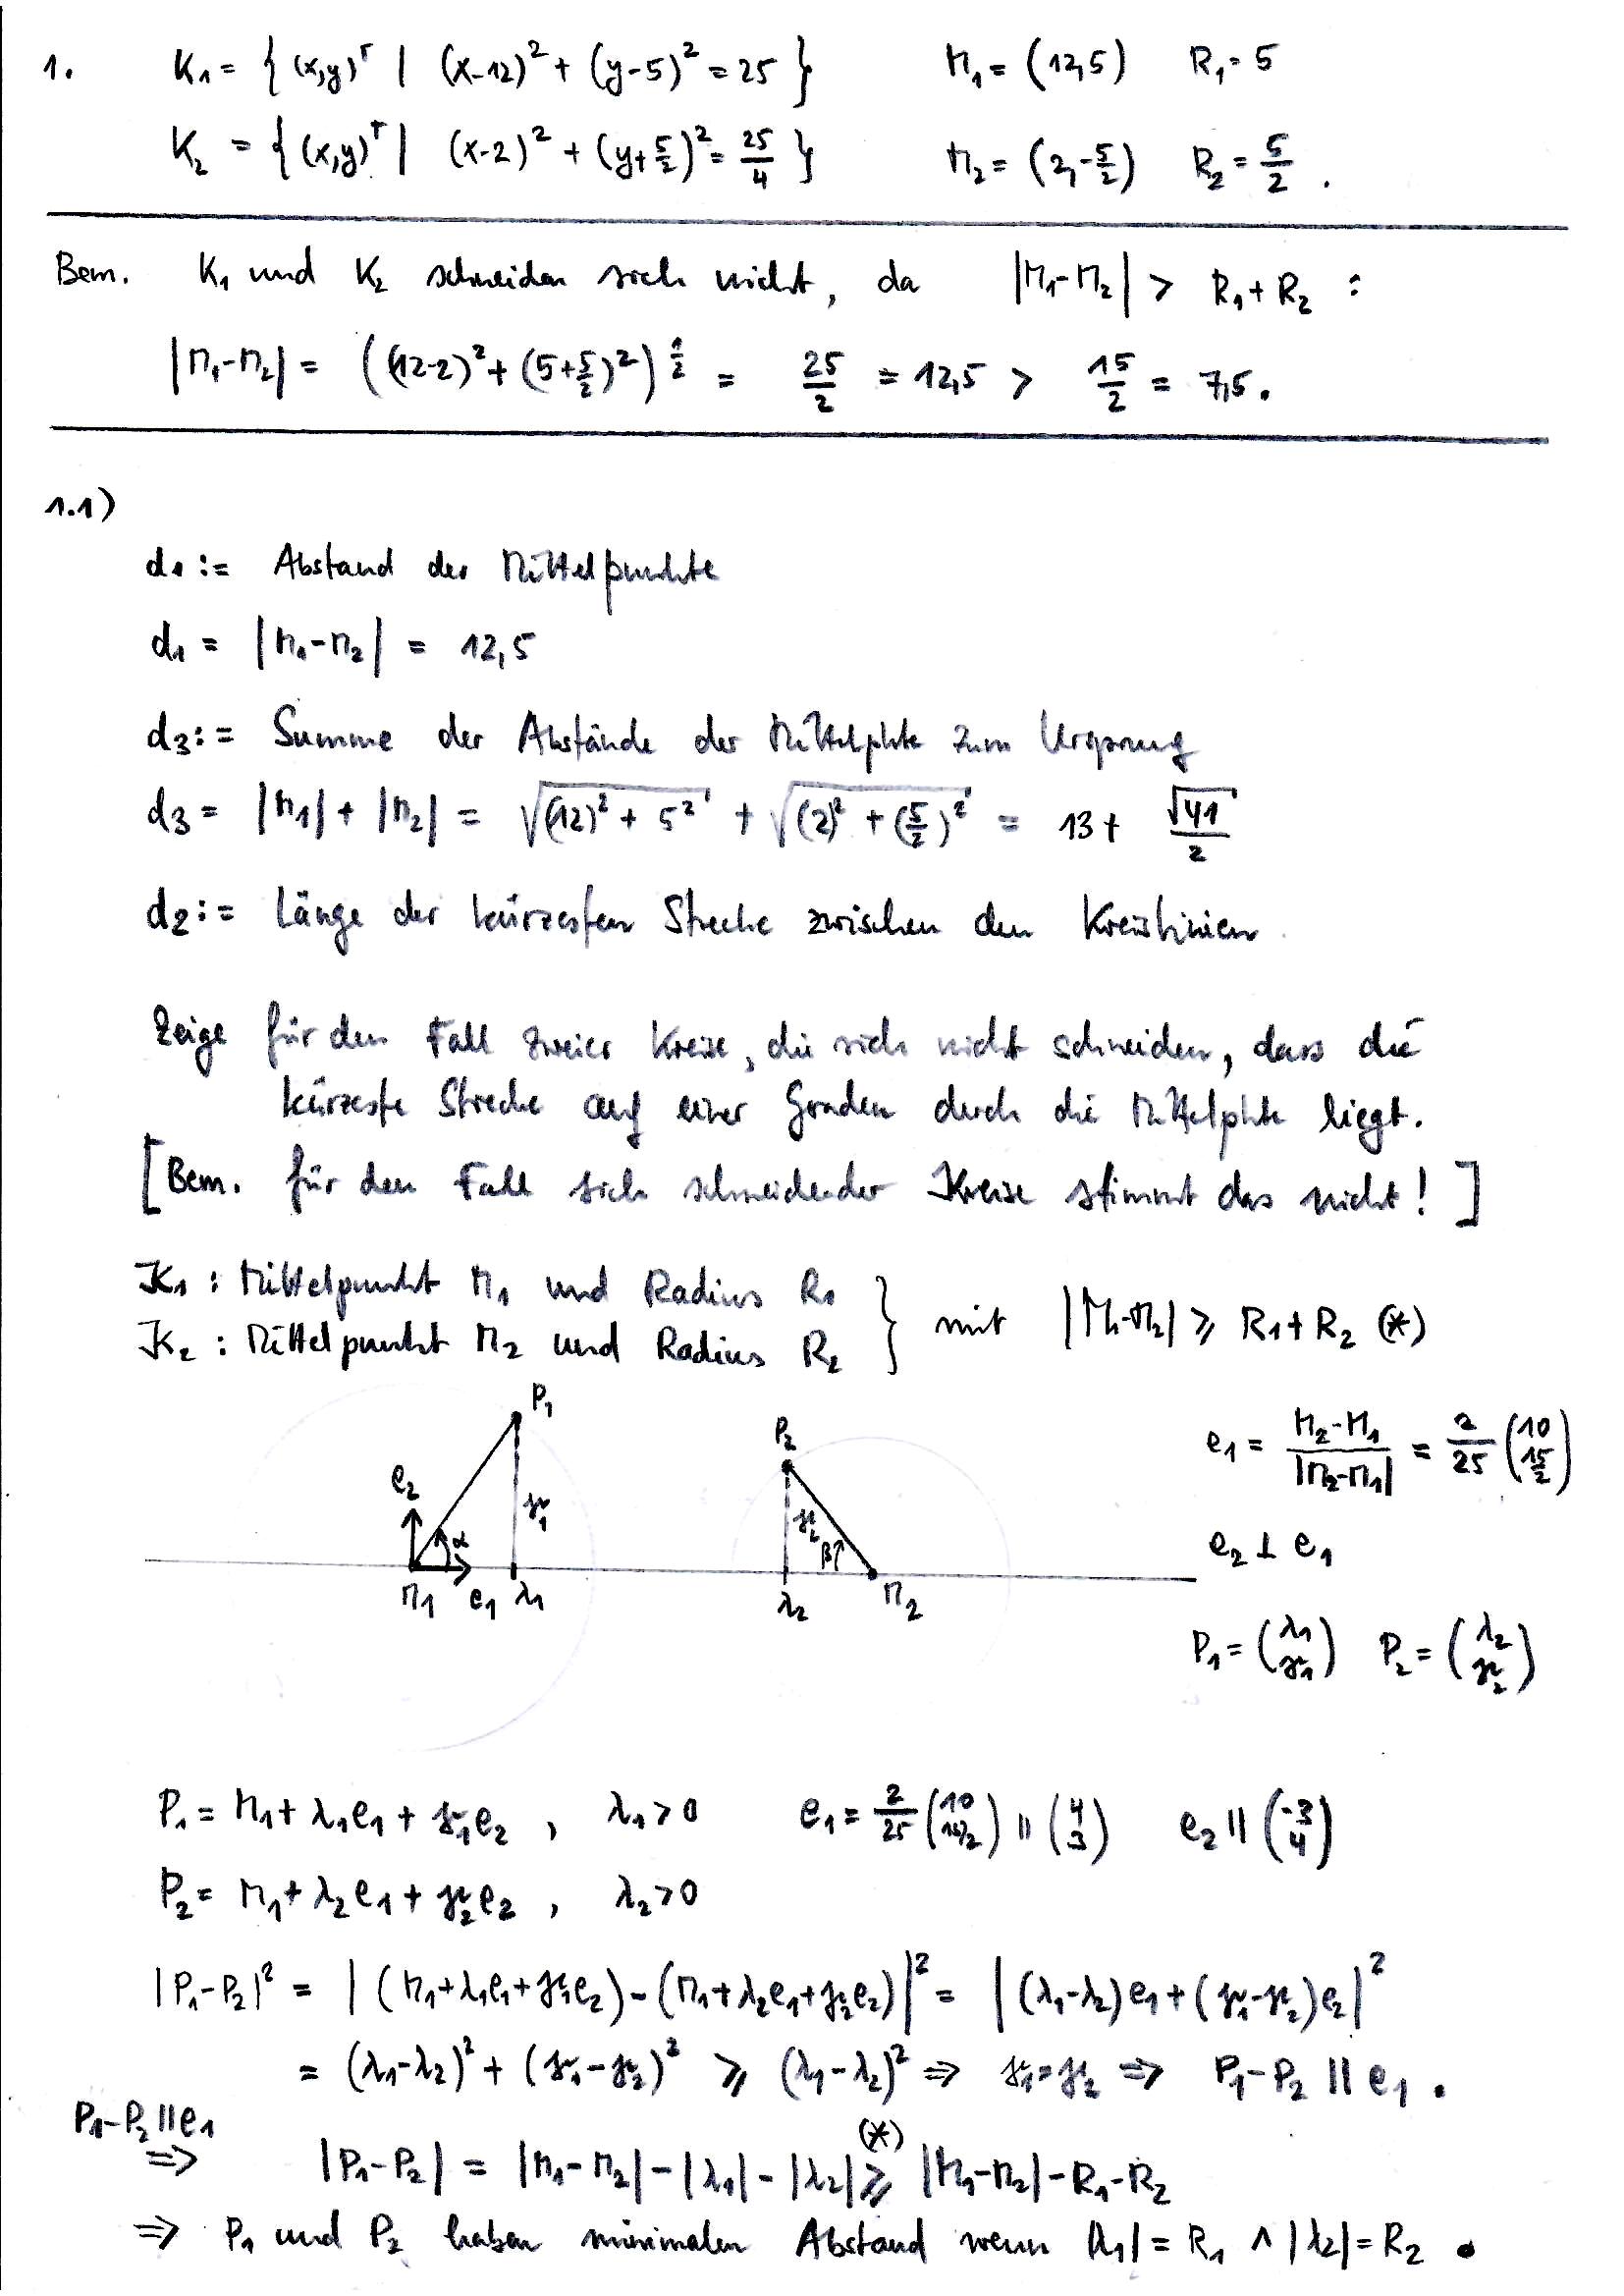 1. K₁ = { (x,y)ᵀ | (x-12)² + (y-5)² = 25 } M₁ = (12,5) R₁ = 5
K₂ = { (x,y)ᵀ | (x-2)² + (y+5/2)² = 25/4 } M₂ = (2,-5/2) R₂ = 5/2 .
Bem. K₁ und K₂ schneiden sich nicht, da |M₁-M₂| > R₁+R₂ :
|M₁-M₂| = ((12-2)² + (5+5/2)²)^1/2 = 25/2 = 12,5 > 15/2 = 7,5.
1.1)
d₁ := Abstand der Mittelpunkte
d₁ = |M₁-M₂| = 12,5
d₃ := Summe der Abstände der Mittelpkte zum Ursprung
d₃ = |M₁| + |M₂| = √((12)² + 5²) + √((2)² + (5/2)²) = 13 + √41/2
d₂ := Länge der kürzesten Strecke zwischen den Kreislinien.
Zeige für den Fall zweier Kreise, die sich nicht schneiden, dass die
kürzeste Strecke auf einer Graden durch die Mittelpkte liegt.
[Bem. für den Fall sich schneidender Kreise stimmt das nicht! ]
K₁ : Mittelpunkt M₁ und Radius R₁
K₂ : Mittelpunkt M₂ und Radius R₂ } mit |M₁-M₂| ≥ R₁+R₂ (*)
P₁
P₂
e₂ γ₁ γ₂
α β
M₁ e₁ λ₁ λ₂ M₂
e₁ = (M₂-M₁)/|M₂-M₁| = 2/25 (10 15/2)
e₂ ⊥ e₁
P₁ = (λ₁ γ₁) P₂ = (λ₂ γ₂)
P₁ = M₁ + λ₁e₁ + γ₁e₂ , λ₁ > 0 e₁ = 2/25 (10 15/2) || (4 3) e₂ || (-3 4)
P₂ = M₁ + λ₂e₁ + γ₂e₂ , λ₂ > 0
|P₁-P₂|² = |(M₁+λ₁e₁+γ₁e₂) - (M₁+λ₂e₁+γ₂e₂)|² = |(λ₁-λ₂)e₁ + (γ₁-γ₂)e₂|²
= (λ₁-λ₂)² + (γ₁-γ₂)² ≥ (λ₁-λ₂)² ⇒ γ₁=γ₂ ⇒ P₁-P₂ || e₁ .
P₁-P₂ || e₁
⇒ |P₁-P₂| = |M₁-M₂| - |λ₁| - |λ₂| ≥ (*) |M₁-M₂| - R₁ - R₂
⇒ P₁ und P₂ haben minimalen Abstand wenn |λ₁| = R₁ ∧ |λ₂| = R₂ .